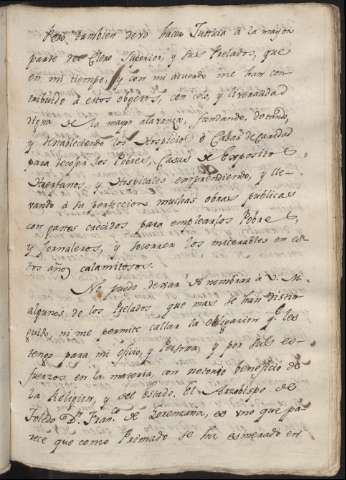 Pero tambien devo hacer Justicia à la mayor
parte del Clero Superior, y sus Prelados, que
en mi tiempo, y con mi acuerdo me han con
tribuido à estos objetos, con celo, y liveralidad
digna de la mayor alavanza, fundando, dotando,
y estableciendo los Hospicios, ò Casas de Caridad
para recojer los Pobres, Casas de Expositos,
Huerfanos, y Hospitales emprendiendo, y lle
vando à su perfeccion muchas obras publicas
con gastos crecidos, para emplear los Pobres,
y Jornaleros, y socorrer los miserables en es
tos años calamitosos.
No puedo dexar de nombrar à V. M.
algunos de los Prelados que mas se han distin
guido, ni me permite callar la obligacion q.e les
tengo por mi oficio, y Justicia, y por sus es-
fuerzos en la materia, con notorio beneficio de
la Religion, y del Estado. El Arzobispo de
Toledo D.n Fran.co de Lorenzana, es uno que pa
rece que como Primado se ha esmerado en